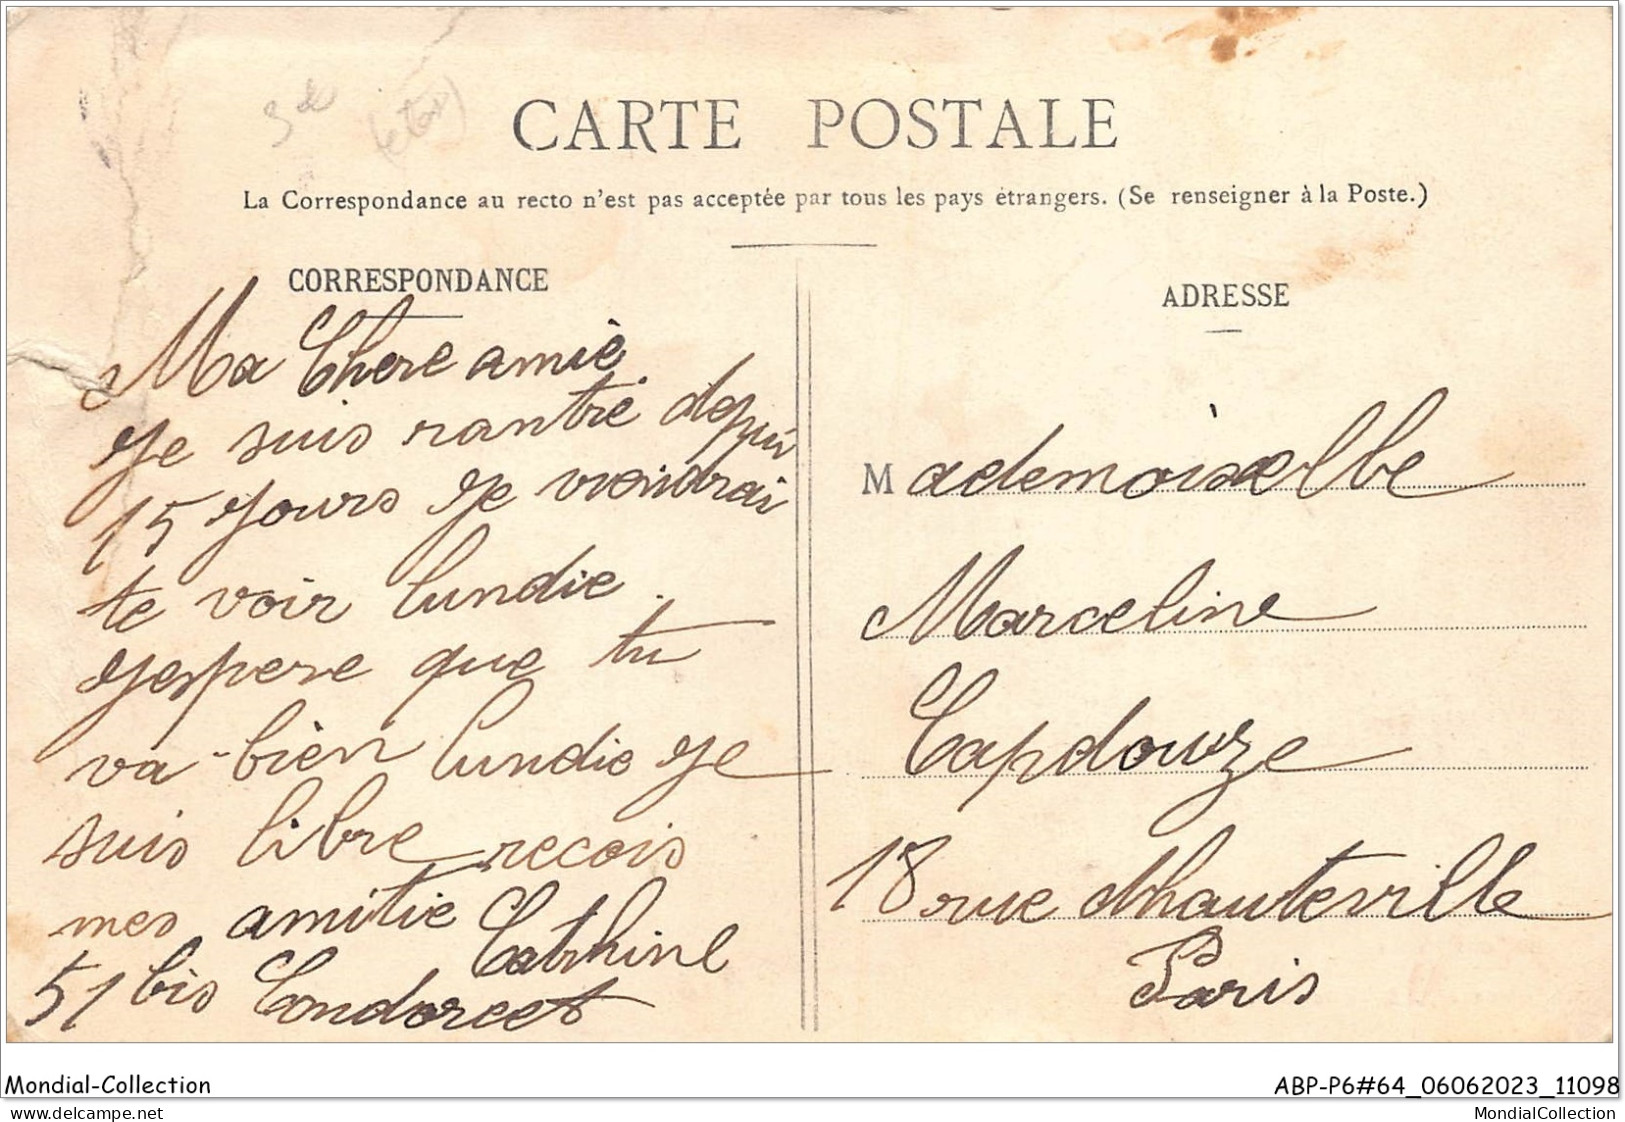 3d
CARTE POSTALE
La Correspondance au recto n'est pas acceptée par tous les pays étrangers. (Se renseigner à la Poste.)
CORRESPONDANCE
Ma Chere amiè
Je suis rantré depuis
15 Jours Je viendrai
te voir lundie.
Jespere que tu
va bien lundie Je
suis libre recois
mes amitie Cathine
51 bis Condorcet
ADRESSE
Mademoiselle
Marceline
Capdouze
18 rue dhauteville
Paris
Mondial-Collection
ABP-P6#64_06062023_11098
delcampe.net
MondialCollection